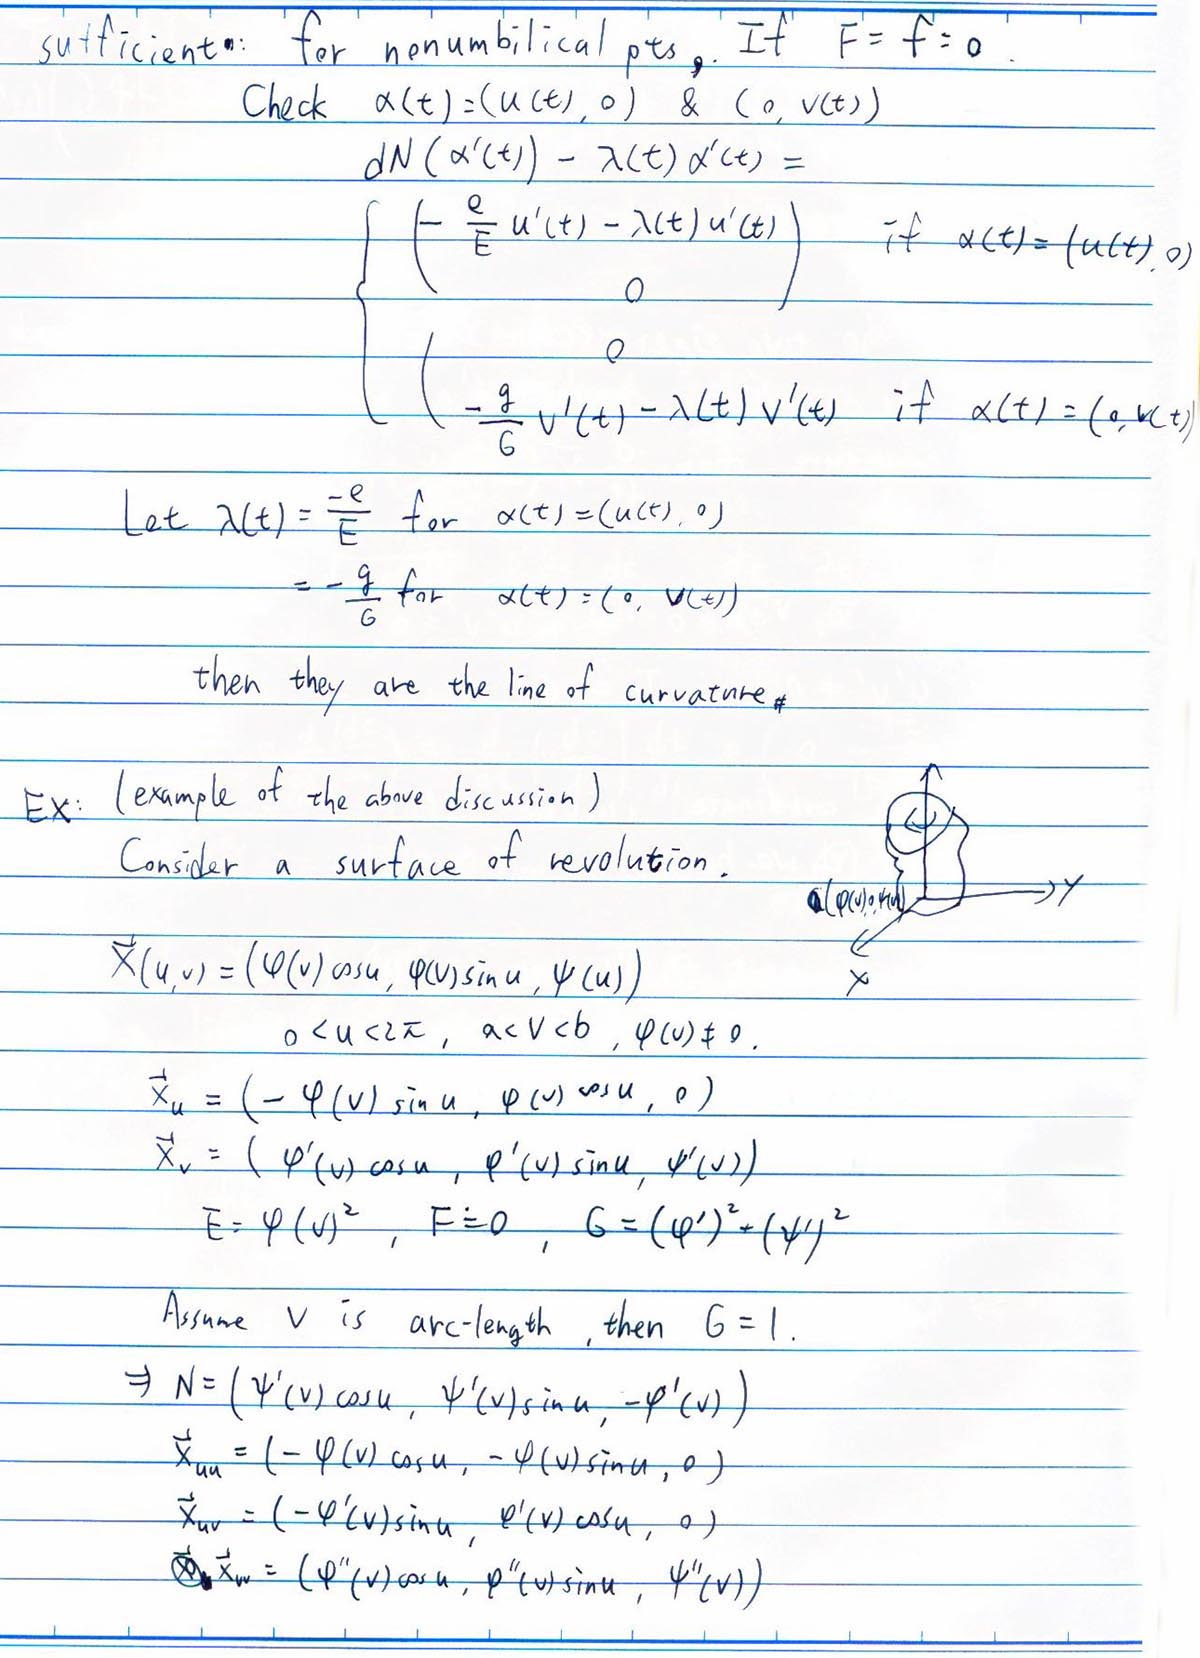 sufficient: for nonumbilical pts, If F = f = 0.
Check α(t)=(u(t), 0) & (0, v(t))
dN(α'(t)) - λ(t) α'(t) =
(- e/E u'(t) - λ(t) u'(t)) if α(t) = (u(t), 0)
0
0
(- g/G v'(t) - λ(t) v'(t) if α(t) = (0, v(t))
Let λ(t) = -e/E for α(t) = (u(t), 0)
= - g/G for α(t) = (0, v(t))
then they are the line of curvature. #
EX: (example of the above discussion)
Consider a surface of revolution.
(φ(v), 0, ψ(v))
Y
X
X⃗(u,v) = (φ(v) cosu, φ(v) sinu, ψ(u))
0<u<2π, a<v<b, φ(v)≠0.
X⃗u = (-φ(v) sinu, φ(v) cosu, 0)
X⃗v = (φ'(v) cosu, φ'(v) sinu, ψ'(v))
E = φ(v)², F = 0, G = (φ')² + (ψ')²
Assume v is arc-length, then G = 1.
⇒ N = (ψ'(v) cosu, ψ'(v) sinu, -φ'(v))
X⃗uu = (-φ(v) cosu, -φ(v) sinu, 0)
X⃗uv = (-φ'(v) sinu, φ'(v) cosu, 0)
X⃗vv = (φ''(v) cosu, φ''(v) sinu, ψ''(v))